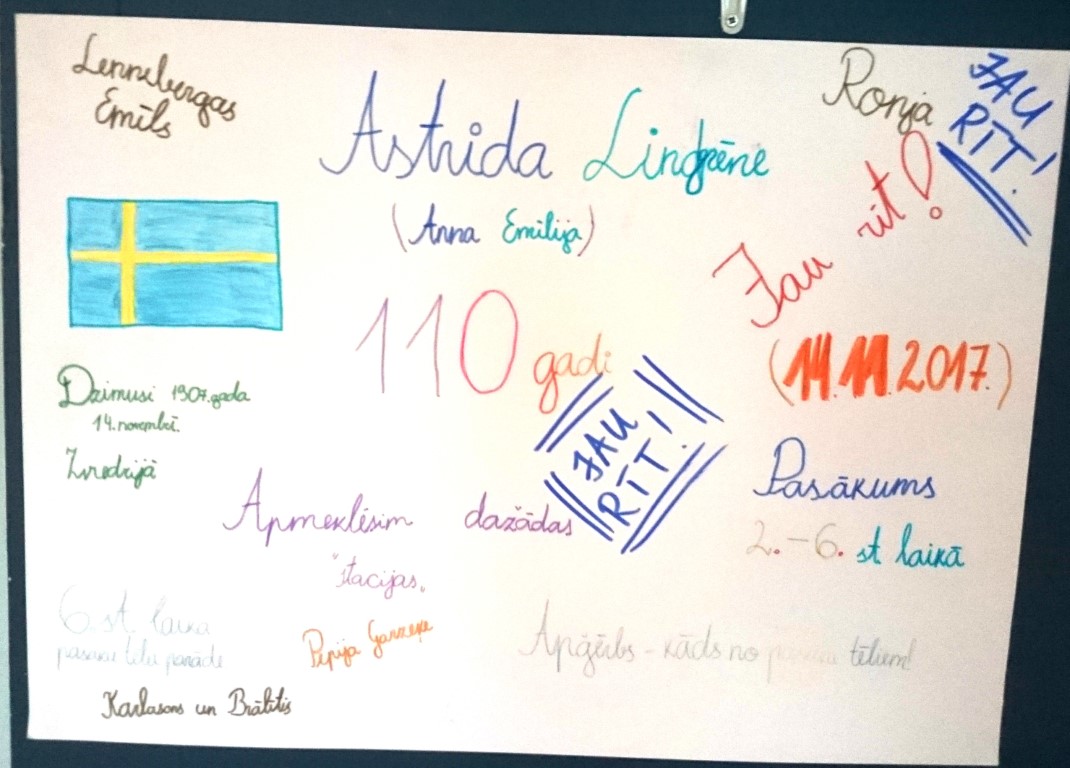 Lennebergas
Emīls
Astrida Lindgrēne
(Anna Emīlija)
Ronja
JAU
RĪT!
Jau rīt!
(14.11.2017.)
110 gadi
JAU
RĪT!
Dzimusi 1907. gada
14. novembrī.
Zviedrijā
Apmeklēsim dažādas
"stacijas"
Pasākums
2. - 6. st laikā
6. st. laikā
pasaku tēlu parāde
Pepija Garzeķe
Apģērbs - kāds no pasaku tēliem!
Karlsons un Brālītis